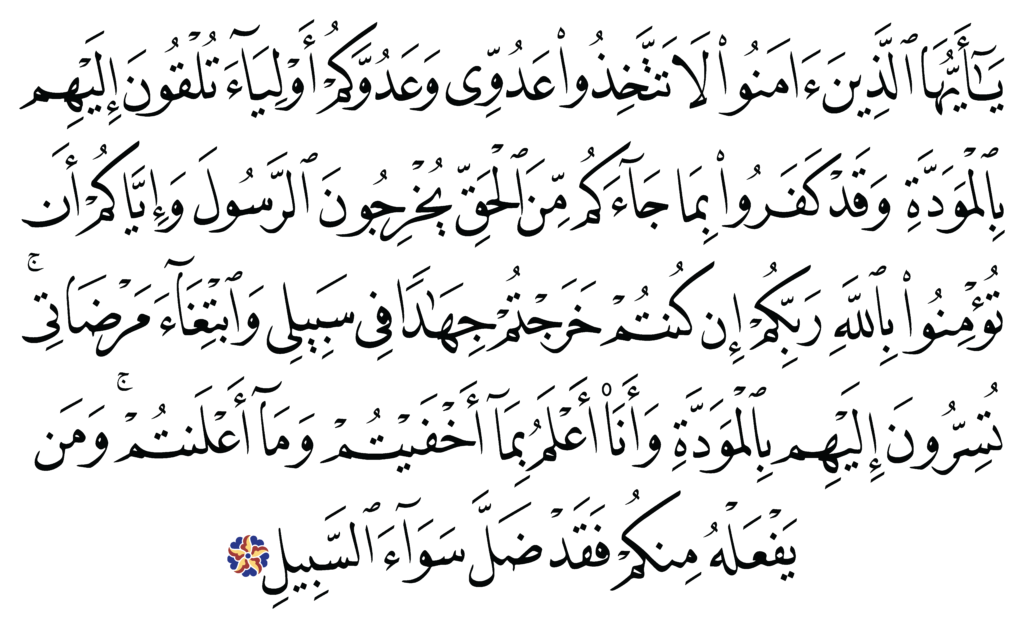 يَـٰٓأَيُّهَا ٱلَّذِينَ ءَامَنُوا۟ لَا تَتَّخِذُوا۟ عَدُوِّى وَعَدُوَّكُمْ أَوْلِيَآءَ تُلْقُونَ إِلَيْهِم
بِٱلْمَوَدَّةِ وَقَدْ كَفَرُوا۟ بِمَا جَآءَكُم مِّنَ ٱلْحَقِّ يُخْرِجُونَ ٱلرَّسُولَ وَإِيَّاكُمْ أَن
تُؤْمِنُوا۟ بِٱللَّهِ رَبِّكُمْ إِن كُنتُمْ خَرَجْتُمْ جِهَـٰدًا فِى سَبِيلِى وَٱبْتِغَآءَ مَرْضَاتِى ۚ
تُسِرُّونَ إِلَيْهِم بِٱلْمَوَدَّةِ وَأَنَا۠ أَعْلَمُ بِمَآ أَخْفَيْتُمْ وَمَآ أَعْلَنتُمْ ۚ وَمَن
يَفْعَلْهُ مِنكُمْ فَقَدْ ضَلَّ سَوَآءَ ٱلسَّبِيلِ